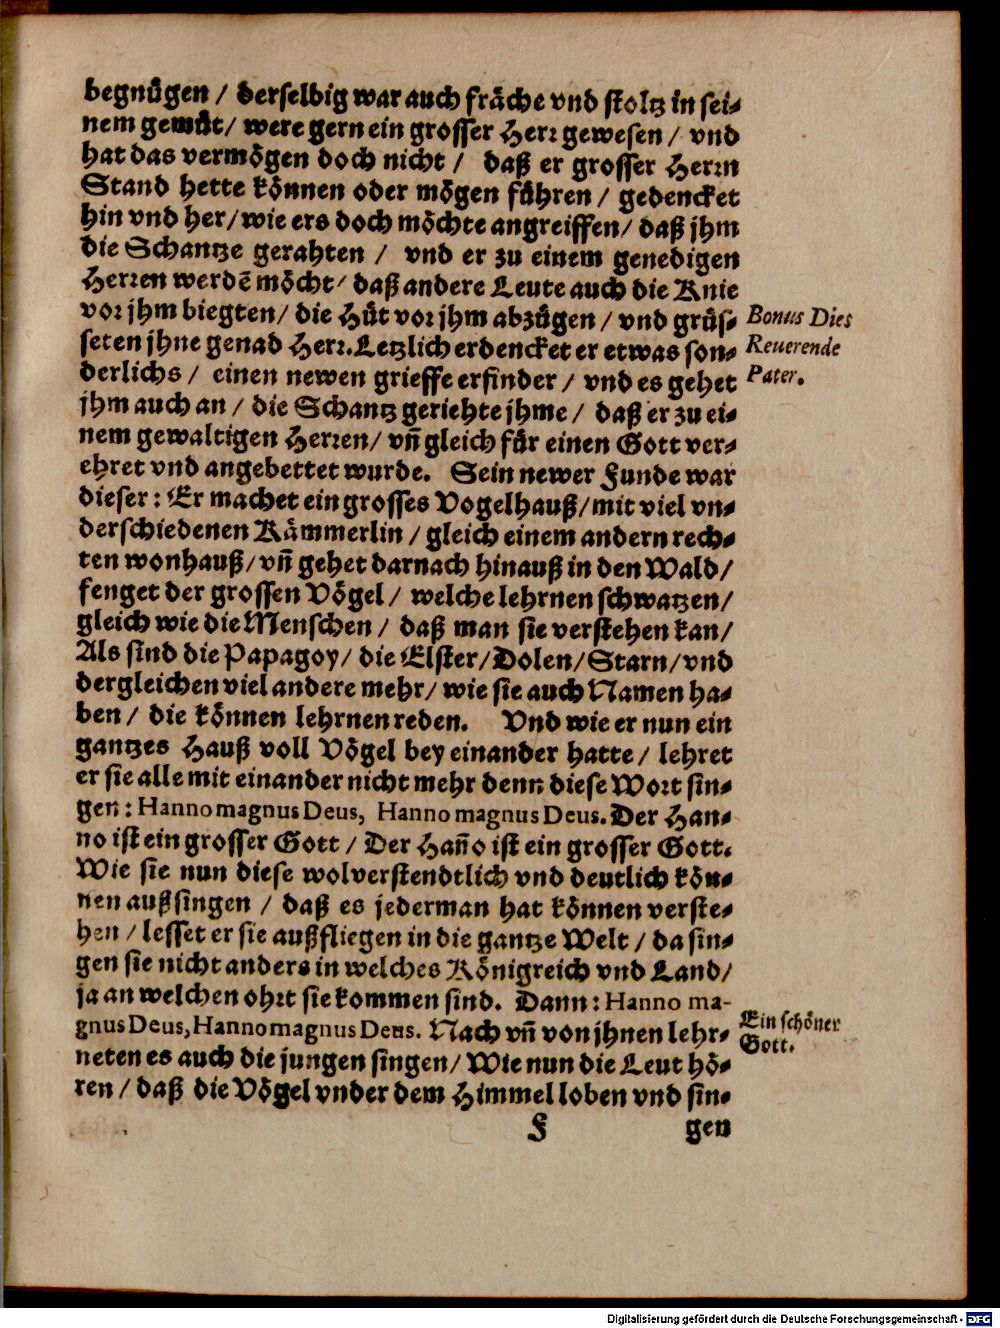 begnügen / derselbig war auch fräche vnd stoltz in sei-
nem gemüt / were gern ein grosser Herr gewesen / vnd
hat das vermögen doch nicht / daß er grosser Herrn
Stand hette können oder mögen führen / gedencket
hin vnd her / wie ers doch möchte angreiffen / daß jhm
die Schantze gerahten / vnd er zu einem genedigen
Herren werdē möcht / daß andere Leute auch die Knie
vor jhm biegten / die Hüt vor jhm abzügen / vnd grüs-
seten jhne genad Herr. Letzlich erdencket er etwas son-
derlichs / einen newen grieffe erfinder / vnd es gehet
jhm auch an / die Schantz geriehte jhme / daß er zu ei-
nem gewaltigen Herren / vn̄ gleich für einen Gott ver-
ehret vnd angebettet wurde. Sein newer Funde war
dieser: Er machet ein grosses Vogelhauß / mit viel vn-
derschiedenen Kämmerlin / gleich einem andern rech-
ten wonhauß / vn̄ gehet darnach hinauß in den Wald /
fenget der grossen Vögel / welche lehrnen schwatzen /
gleich wie die Menschen / daß man sie verstehen kan /
Als sind die Papagoy / die Elster / Dolen / Starn / vnd
dergleichen viel andere mehr / wie sie auch Namen ha-
ben / die können lehrnen reden. Vnd wie er nun ein
gantzes Hauß voll Vögel bey einander hatte / lehret
er sie alle mit einander nicht mehr denn diese Wort sin-
gen: Hanno magnus Deus, Hanno magnus Deus. Der Han-
no ist ein grosser Gott / Der Han̄o ist ein grosser Gott.
Wie sie nun diese wolverstendtlich vnd deutlich kön-
nen außsingen / daß es jederman hat können verste-
hen / lesset er sie außfliegen in die gantze Welt / da sin-
gen sie nicht anders in welches Königreich vnd Land /
ja an welchen ohrt sie kommen sind. Dann: Hanno ma-
gnus Deus, Hanno magnus Deus. Nach vn̄ von jhnen lehr-
neten es auch die jungen singen / Wie nun die Leut hö-
ren / daß die Vögel vnder dem Himmel loben vnd sin-
F gen
Bonus Dies
Reuerende
Pater.
Ein schöner
Gott.
Digitalisierung gefördert durch die Deutsche Forschungsgemeinschaft - DFG